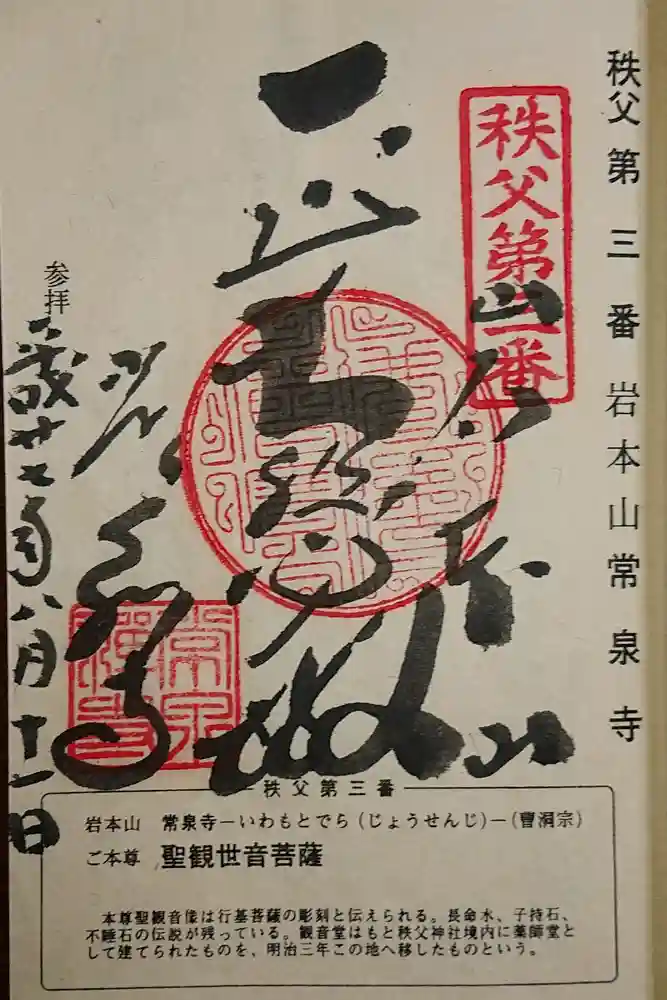 秩父第三番 岩本山常泉寺
秩父第三番
岩本山
常泉寺
参拝
平成廿七年八月十一日
秩父第三番
岩本山 常泉寺－いわもとでら（じょうせんじ）－（曹洞宗）
ご本尊 聖観世音菩薩
本尊聖観音像は行基菩薩の彫刻と伝えられる。長命水、子持石、
不睡石の伝説が残っている。観音堂はもと秩父神社境内に薬師堂と
して建てられたものを、明治三年この地へ移したものという。